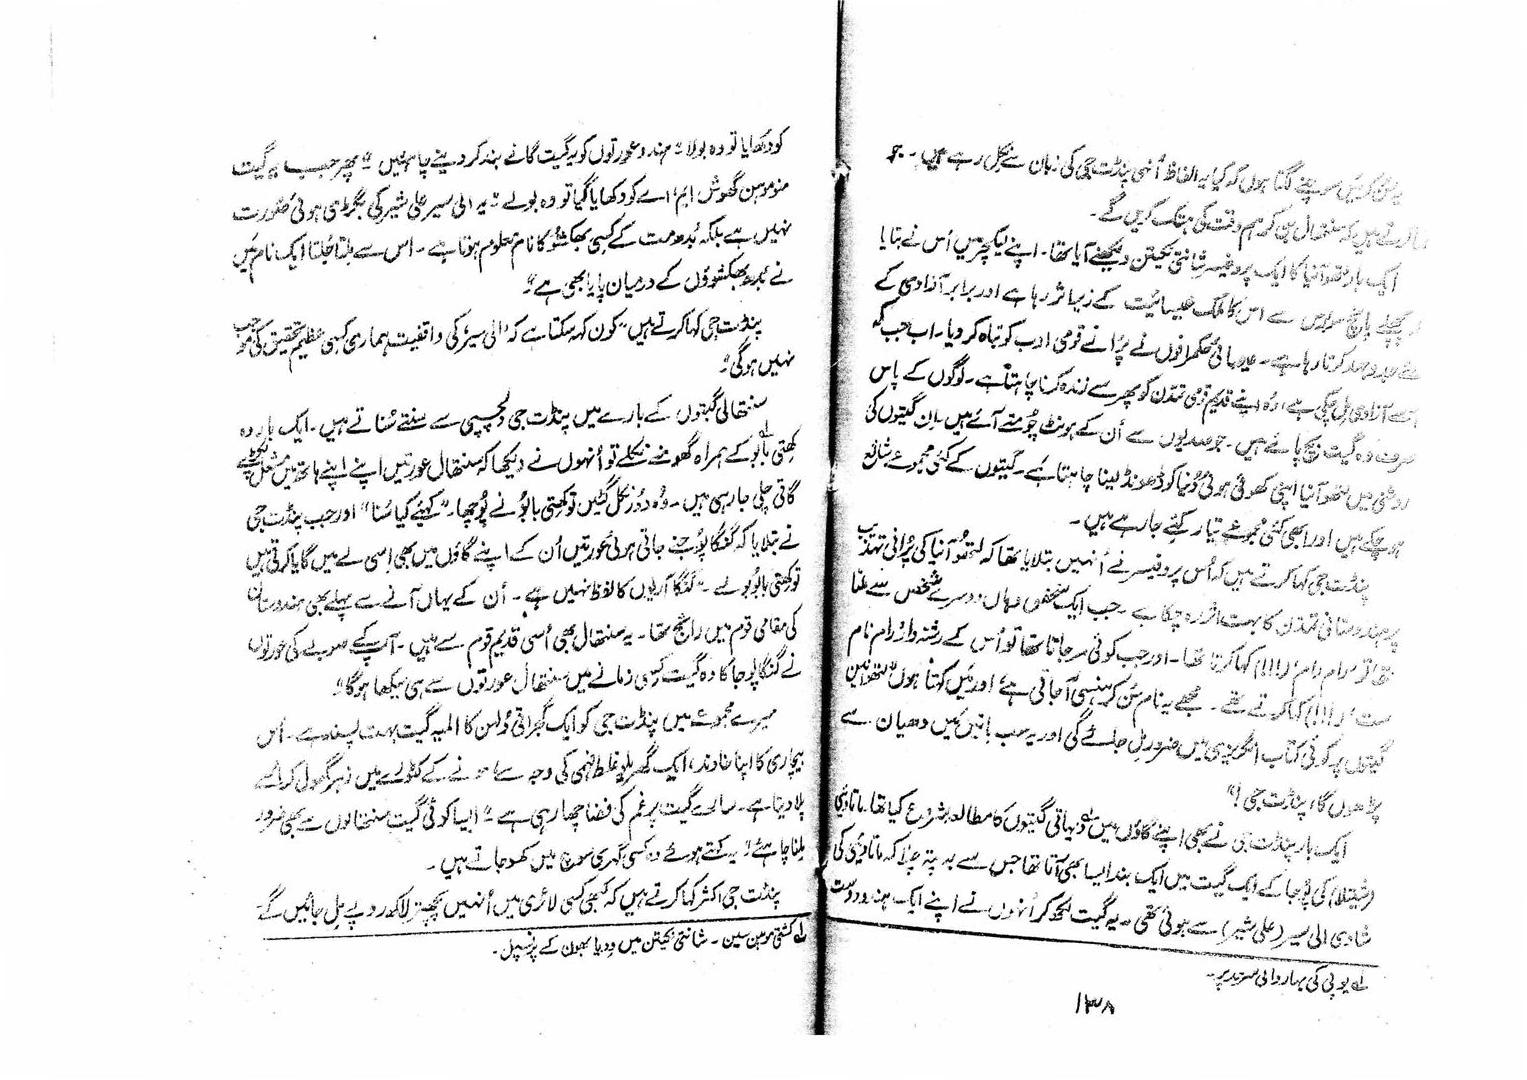 یہ سن کر میں سوچنے لگتا ہوں کہ کیا یہ الفاظ اُنہی پنڈت جی کی زبان سے نکل رہے ہیں۔ جو
کرتے ہیں کہ سنتھال بن کر ہم وقت کی ہتک کریں گے۔
ایک بار لتھوآنیا کا ایک پروفیسر شانتی نکیتن دیکھنے آیا تھا۔ اپنے لیکچر میں اُس نے بتایا
پچھلے پانچ سو برس سے اس کا ملک عیسائیت کے زیر اثر رہا ہے اور برابر آزادی کے
جدوجہد کرتا رہا ہے۔ عیسائی حکمرانوں نے پُرانے قومی ادب کو تباہ کر دیا۔ اب جب کہ
اسے آزادی مل چکی ہے وہ اپنے قدیم قومی تمدّن کو پھر سے زندہ کرنا چاہتا ہے۔ لوگوں کے پاس
صرف وہ گیت بچ پائے ہیں۔ جو صدیوں سے اُن کے ہونٹ چُومتے آئے ہیں۔ اِن گیتوں کی
روشنی میں لتھوآنیا اپنی کھوئی ہوئی دُنیا کو ڈھونڈ لینا چاہتا ہے۔ گیتوں کے کئی مجموعے شائع
ہو چکے ہیں اور ابھی کئی مجموعے تیار کئے جا رہے ہیں۔
پنڈت جی کہا کرتے ہیں کہ اُس پروفیسر نے اُنہیں بتلایا تھا کہ لتھوآنیا کی پُرانی تہذیب
پر ہندوستانی تمدّن کا بہت اثر رہ چکا ہے۔ جب ایک شخص وہاں دوسرے شخص سے ملتا
تھا تو 'رام رام' (!!!) کہا کرتا تھا۔ اور جب کوئی مر جاتا تھا تو اُس کے رشتہ دار 'رام نام
ست' (!!!) کہا کرتے تھے۔ مجھے یہ نام سُن کر ہنسی آ جاتی ہے اور میں کہتا ہوں "لتھوانین
گیتوں پر کوئی کتاب انگریزی میں ضرور مل جائے گی اور یہ سب باتیں میں دھیان سے
پڑھوں گا، پنڈت جی!"
ایک بار پنڈت جی نے بھی اپنے گاؤں میں لہ دیہاتی گیتوں کا مطالعہ شروع کیا تھا۔ ماتا دیوی
(شیتلا) کی پُوجا کے ایک گیت میں ایک بند ایسا بھی آتا تھا جس سے یہ پتہ چلا کہ ماتا دیوی کی
شادی الی سیر (علی شیر) سے ہوئی تھی۔ یہ گیت لکھ کر اُنہوں نے اپنے ایک ہندو دوست
لہ یوپی کی بہار والی سرحد پر۔
۱۳۸
کو دکھایا تو وہ بولا "ہندو عورتوں کو یہ گیت گانے بند کر دینے چاہئیں" پھر جب یہ گیت
منوموہن گھوش ایم اے کو دکھایا گیا تو وہ بولے "یہ الی سیر علی شیر کی بگڑی ہوئی صُورت
نہیں ہے بلکہ بُدھ مت کے کسی بھکشو کا نام معلوم ہوتا ہے۔ اس سے ملتا جُلتا ایک نام میں
نے بدھ بھکشوؤں کے درمیان پایا بھی ہے"۔
پنڈت جی کہا کرتے ہیں "کون کہہ سکتا ہے کہ 'الی سیر' کی واقفیت ہماری کسی عظیم تحقیق کی موجب
نہیں ہوگی"۔
سنتھالی گیتوں کے بارے میں پنڈت جی دلچسپی سے سنتے سُناتے ہیں۔ ایک بار وہ
کھتی بابُو لہ کے ہمراہ گھومنے نکلے تو اُنہوں نے دیکھا کہ سنتھال عورتیں اپنے اپنے ہاتھ میں مشعل پکڑے
گاتی چلی جا رہی ہیں۔ وہ دُور نکل گئیں تو کھتی بابُو نے پُوچھا۔ "کہئے کیا سُنا" اور جب پنڈت جی
نے بتلایا کہ گنگا پُوجنے جاتی ہوئی عورتیں اُن کے اپنے گاؤں میں بھی اِسی لے میں گایا کرتی ہیں
تو کھتی بابُو بولے۔ "گنگا آریوں کا لفظ نہیں ہے۔ اُن کے یہاں آنے سے پہلے بھی ہندوستان
کی مقامی قوم میں رائج تھا۔ یہ سنتھال بھی اُسی قدیم قوم سے ہیں۔ آپ کے صوبے کی عورتوں
نے گنگا پُوجا کا وہ گیت کسی زمانے میں سنتھال عورتوں سے ہی سیکھا ہوگا"۔
میرے مجموعے میں پنڈت جی کو ایک گجراتی دُلہن کا المیہ گیت بہت پسند ہے۔ اُس
بیچاری کا اپنا خاوند، ایک گھریلو غلط فہمی کی وجہ سے سونے کے کٹورے میں زہر گھول کر اُسے
پلا دیتا ہے۔ سارے گیت پر غم کی فضا چھا رہی ہے "ایسا کوئی گیت سنتھالوں سے بھی ضرور
ملنا چاہئے" یہ کہتے ہوئے وہ کسی گہری سوچ میں کھو جاتے ہیں۔
پنڈت جی اکثر کہا کرتے ہیں کہ کبھی کسی لاٹری میں اُنہیں پچھتر لاکھ روپے مل جائیں گے
لہ کشتی موہن سین۔ شانتی نکیتن میں ودیا بھون کے پرنسپل۔